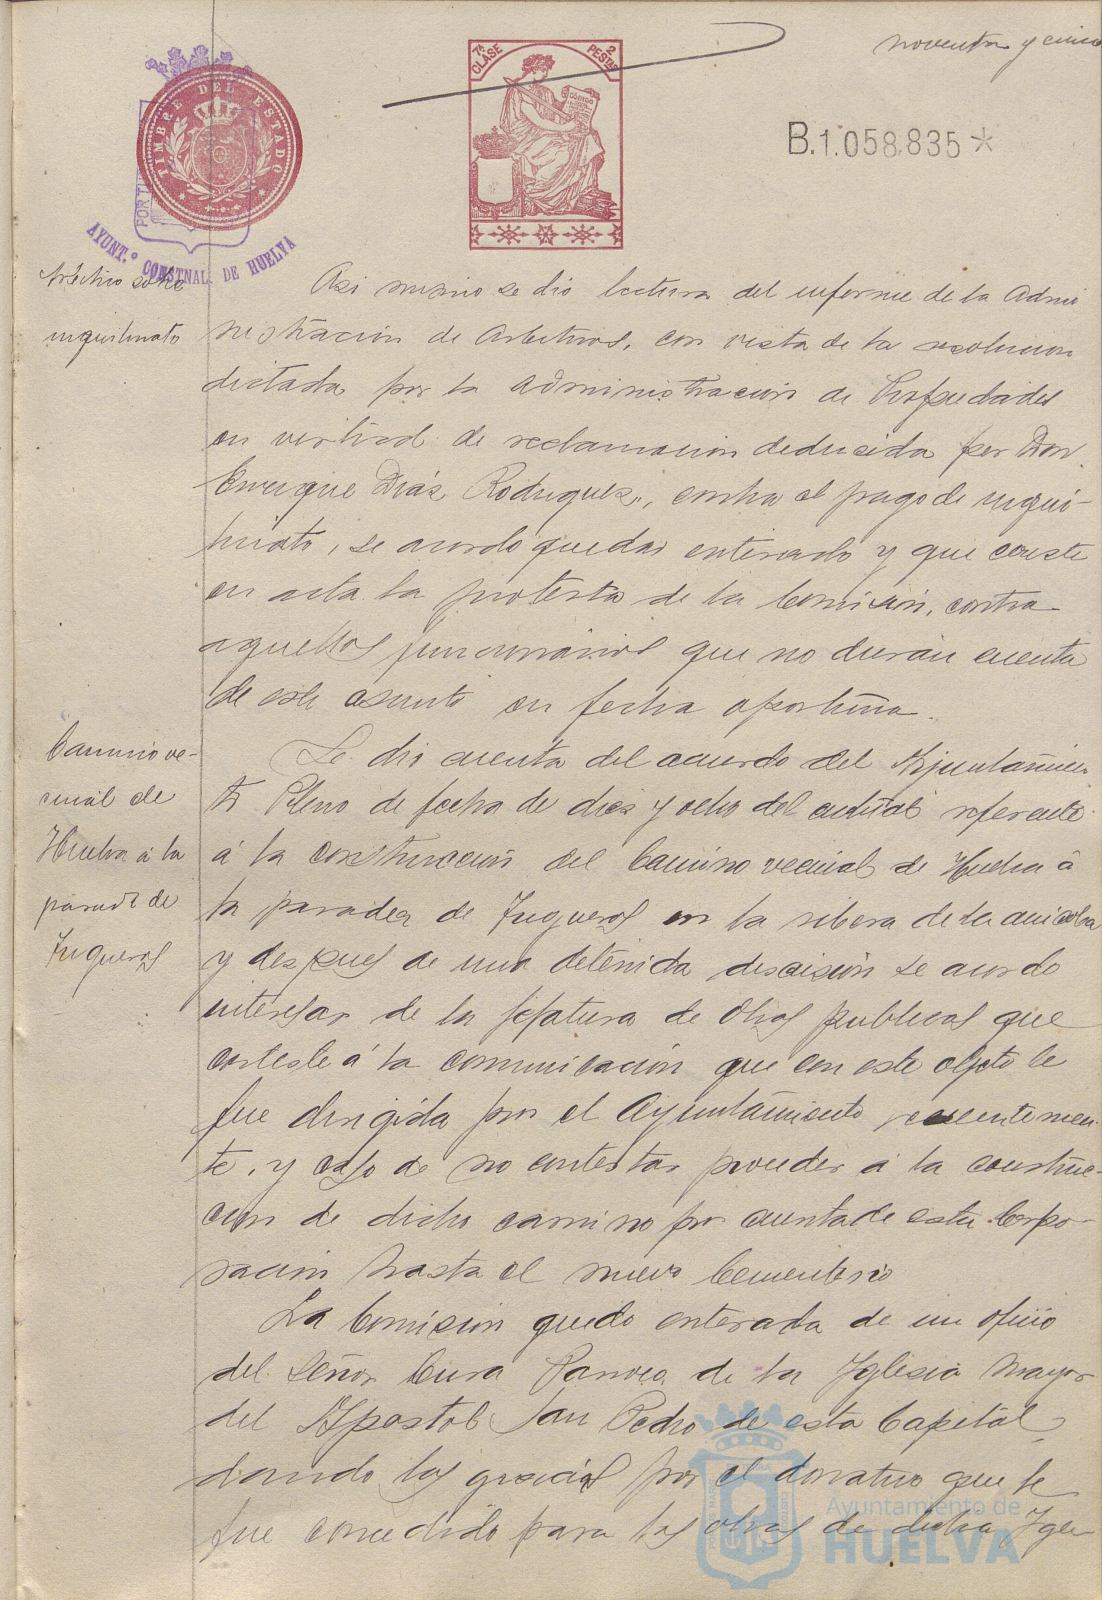 noventa y cinco
TIMBRE DEL ESTADO
7ª CLASE
2 PESTAS
CÓDIGO
B.1.058.835*
AYUNT.º CONSTNAL. DE HUELVA
Arbitrio sobre
inquilinato
Asi mismo se dio lectura del informe de la Admi
nistración de Arbitrios, con vista de la resolucion
dictada por la Administración de Propiedades
en virtud de reclamación deducida por Don
Enrique Diáz Rodriguez, contra el pago de inqui-
linato, se acordo quedar enterado y que conste
en acta la protesta de la Comisión, contra
aquellos funcionários que no dieran cuenta
de este asunto en fecha oportuna.
Camino ve-
cinal de
Huelva á la
parada de
Jugueros
Se dio cuenta del acuerdo del Ayuntamien
to Pleno de fecha de diez y ocho del actual referente
á la construcción del Camino vecinal de Huelva á
la parada de Jugueros en la ribera de la anicoba
y despues de una detenida discusión se acordo
interesar de la jefatura de Obras publicas que
conteste á la comunicación que con este objeto le
fue dirigida por el Ayuntamiento recientemen-
te, y caso de no contestar proceder á la construc-
cion de dicho camino por cuenta de esta Corpo-
racion hasta el nuevo Cementerio
La Comision quedo enterada de un oficio
del Señor Cura Parroco de la Iglesia Mayor
del Apostol San Pedro de esta Capital
dando las gracias por el donativo que le
fue concedido para las obras de dicha Igle
Ayuntamiento de
HUELVA